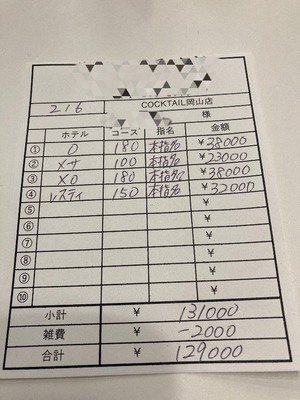 216
COCKTAIL岡山店
様
ホテル コース 指名 金額
① O 180 本指名 ¥38000
② メサ 100 本指名 ¥23000
③ XO 180 本指名 ¥38000
④ レスティ 150 本指名 ¥32000
⑤ ¥
⑥ ¥
⑦ ¥
⑧ ¥
⑨ ¥
⑩ ¥
小計 ¥ 131000
雑費 ¥ -2000
合計 ¥ 129000